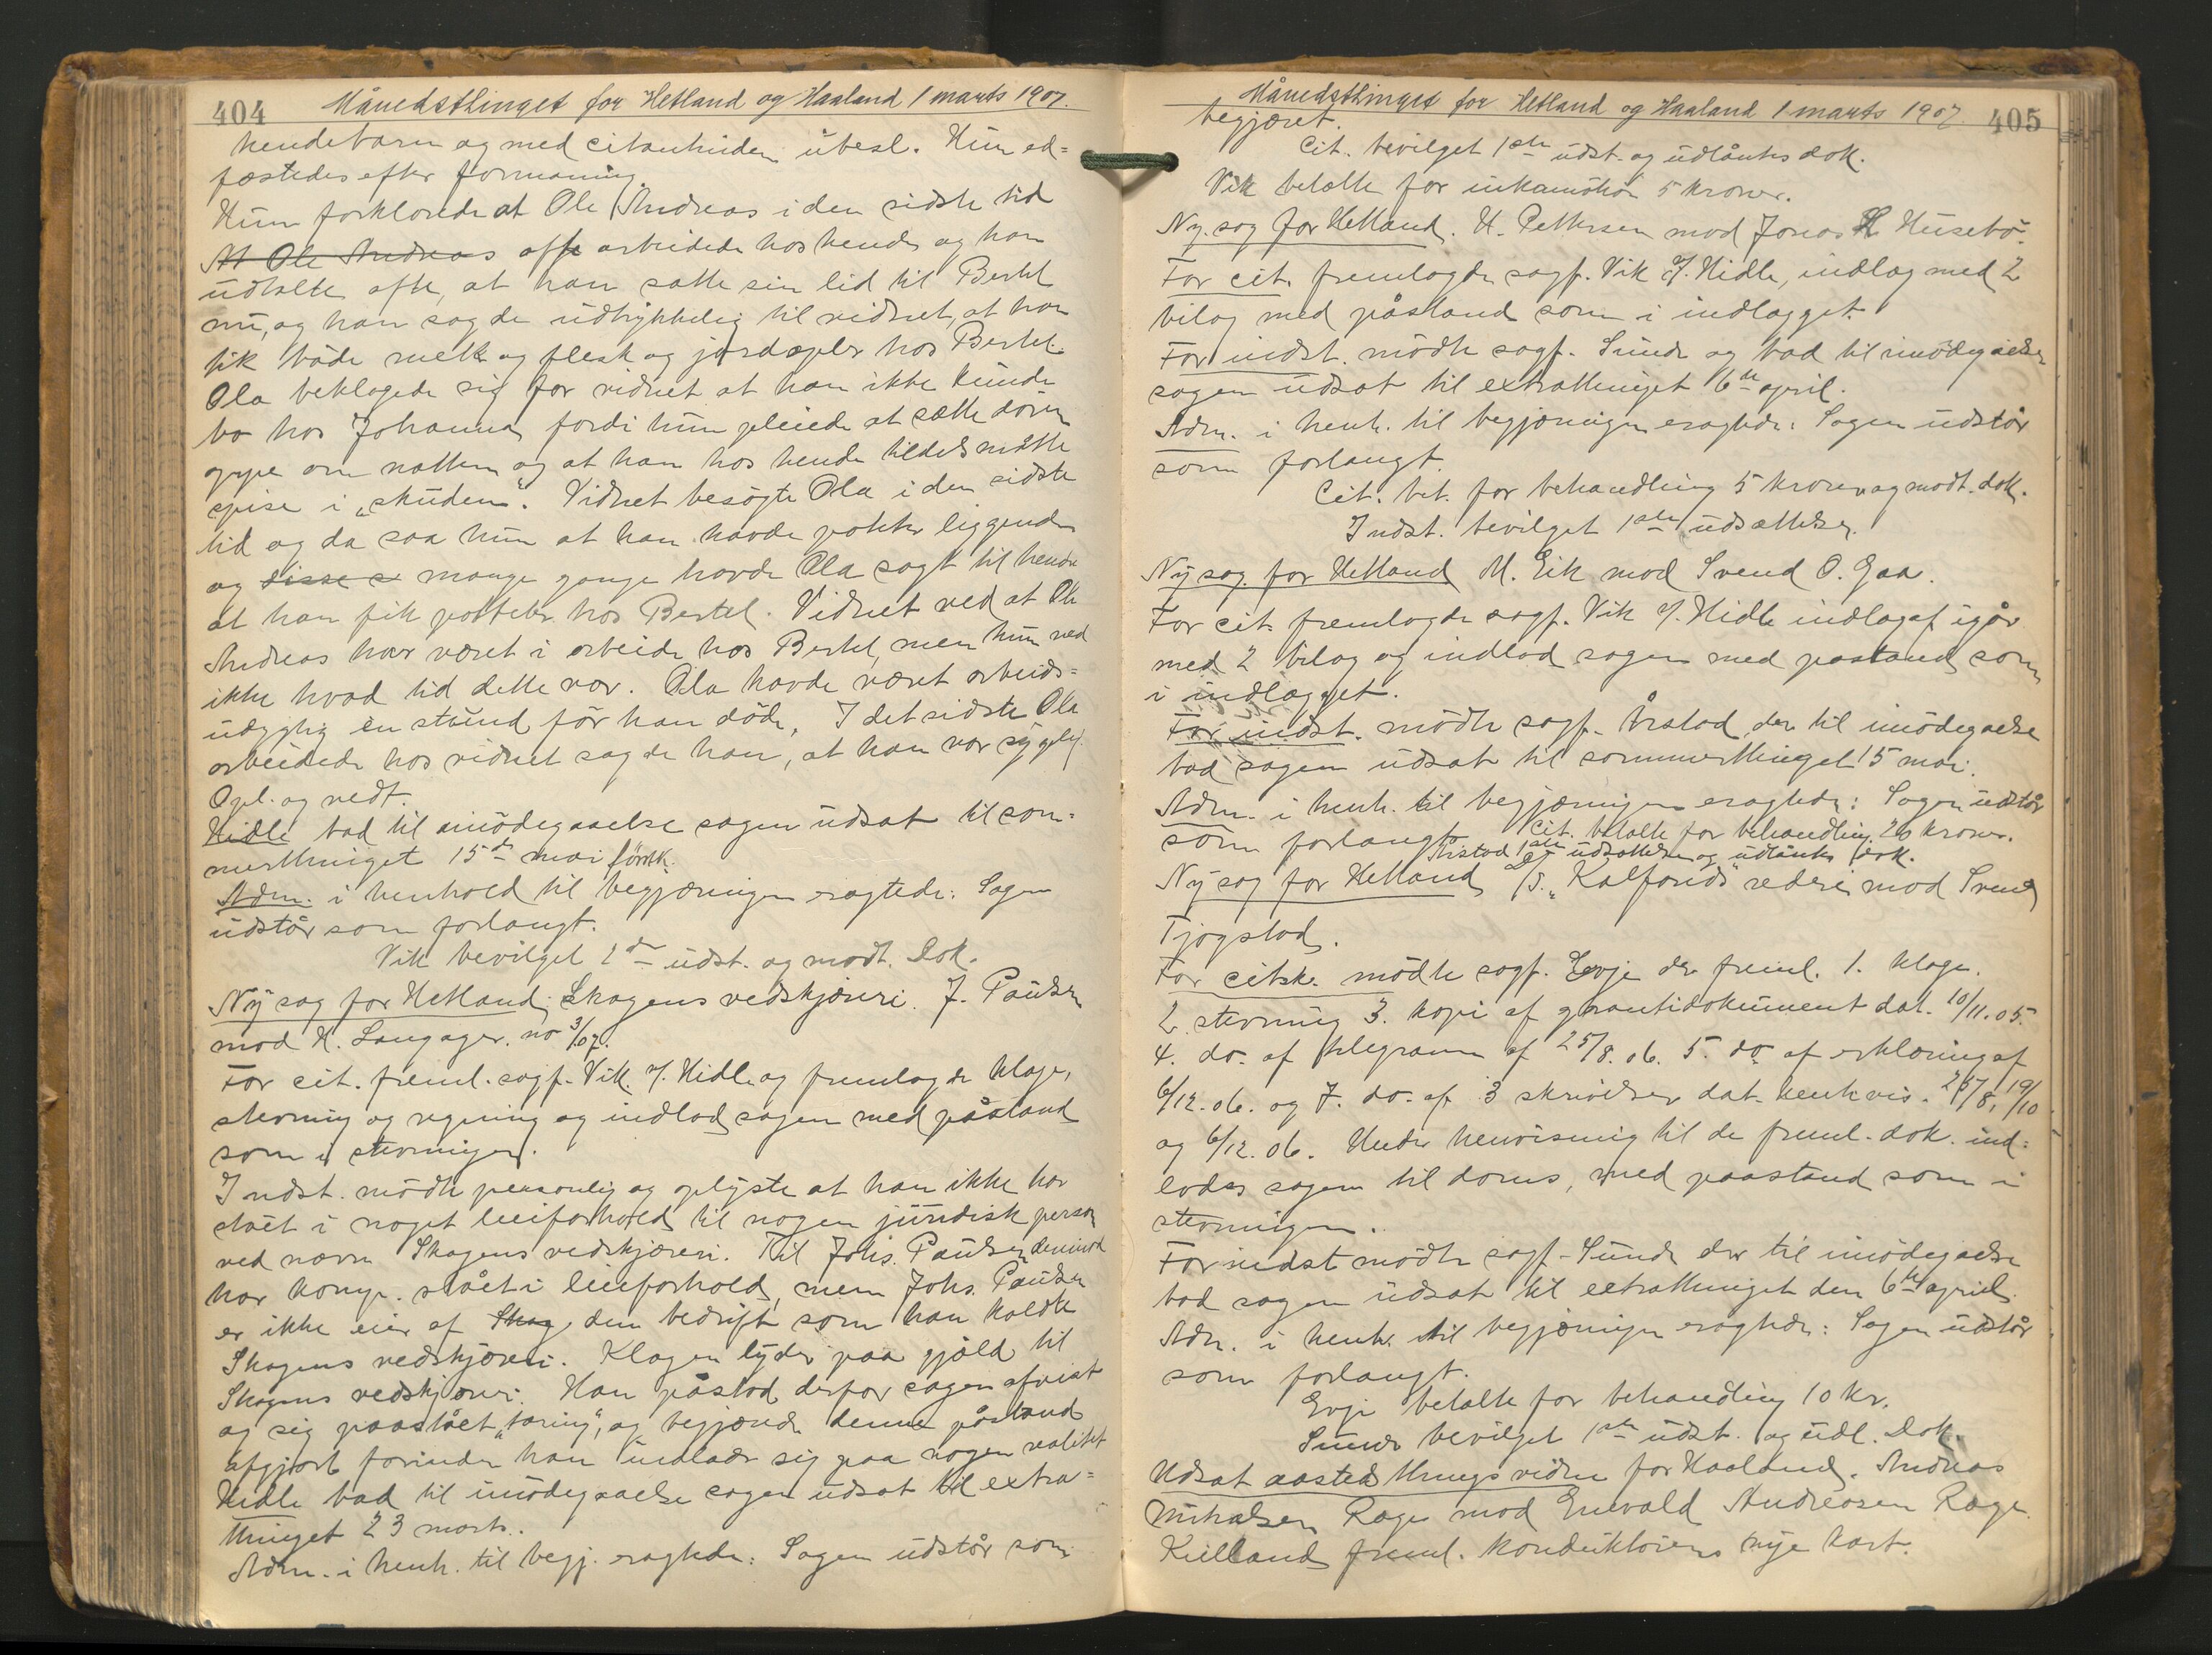 404 Månedsthinget for Hetland og Haaland 1 marts 1907.
hendebarn og med citantinden ubesl. Hun ed=
fæstedes efter formaning.
Hun forklarede at Ole Andreas i den sidste tid
At Ole Andreas ofte arbeidede hos hende og han
udtalte ofte, at han satte sin lid til Bertel
nu, og han sagde udtrykkelig til vidnet, at han
fik både melk og flesk og jordæpler hos Bertel.
Ola beklagede sig for vidnet at han ikke kunde
bo hos Johanna fordi hun pleiede at sætte døren
oppe om natten og at han hos hende tildels måtte
spise i „skuden“. Vidnet besøgte Ola i den sidste
tid og da saa hun at han havde poteter liggende
og disse s mange gange havde Ola sagt til hende
at han fik poteter hos Bertel. Vidnet ved at Ole
Andreas har været i arbeide hos Bertel, men hun ved
ikke hvad tid dette var. Ola havde været arbeids=
udygtig en stund før han døde. I det sidste Ola
arbeidede hos vidnet sagde han, at han var sygelig.
Opl. og vedt.
Hidle bad til imødegaaelse sagen udsat til som=
merthinget 15de mai førstk.
Adm. i henhold til begjæringen eragtede: Sagen
udstår som forlangt.
Vik bevilget 2de udst. og modt. Dok.
Ny sag for Hetland: Skagens vedskjæreri J. Paulsen
mod H. Langager. no 3/07.
For cit. freml. sagf. Vik v/ Hidle og fremlagde klage,
stevning og regning og indlod sagen med påstand
som i stevningen.
Indst. mødte personlig og oplyste at han ikke har
stået i noget leieforhold til nogen juridisk person
ved navn Skagens vedskjæreri. Til Johs. Paulsen derimod
har komp. stået i leieforhold, men Johs. Paulsen
er ikke eier af Skag den bedrift som han kaldte
Skagens vedskjæreri. Klagen lyder paa gjæld til
Skagens vedskjæreri. Han påstod derfor sagen afvist
og sig paastået „tæring“, og begjærede denne påstand
afgjort forinden han indlader sig paa nogen realitet
Hidle bad til imødegaaelse sagen udsat til extra=
thinget 23 marts.
Adm. i henh. til begj. eragtede: Sagen udstår som
Månedsthinget for Hetland og Haaland 1 marts 1907. 405
begjæret.
Cit. bevilget 1ste udst. og udlåntes dok.
Vik betalte for inkamination 5 kroner.
Ny sag for Hetland. H. Pettersen mod Jonas H Husebø.
For cit. fremlagde sagf. Vik v/ Hidle, indlæg med 2
bilag med påstand som i indlægget.
For indst. mødte sagf. Sunde og bad til imødegåelse
sagen udsat til extrathinget 6te april.
Adm. i henh. til begjæringen eragtede: Sagen udstår
som forlangt.
Cit. bet. for behandling 5 kroner og modt. dok.
Indst. bevilget 1ste udsættelse.
Ny sag for Hetland M. Eik mod Svend O. Gaa.
For cit. fremlagde sagf. Vik v/ Hidle indlæg af igår
med 2 bilag og indlod sagen med påstand som
i indlægget.
For indst. mødte sagf. Årstad der til imødegaaelse
bad sagen udsat til sommerthinget 15 mai.
Adm. i henh. til begjæringen eragtede: Sagen udstår
som forlangt. Cit. betalte for behandling 20 kroner.
Årstad 1ste udsættelse og udlåntes dok.
Ny sag for Hetland D/S. „Kalfonds“ rederi mod Svend
Tjøgstad.
For citske. mødte sagf. Evje der freml. 1. klage.
2. stevning 3. kopi af garantidokument dat. 10/11.05.
4. do. af telegram af 25/8.06. 5. do af erklæring af
6/12.06. og 7. do. af 3 skrivelser dat. henhvis. 25/8, 19/10
og 6/12.06. Under henvisning til de freml. dok. ind=
lodes sagen til doms, med paastand som i
stevningen.
For indst mødte sagf. Sunde der til imødegaaelse
bad sagen udsat til extrathinget den 6te april
Adm. i henh. til begjæringen eragtede: Sagen udstår
som forlangt.
Evje betalte for behandling 10 kr.
Sunde bevilget 1ste udst. og udl. Dok.
Udsat aastedsthingsvidne for Haaland. Andreas
Mikalsen Røge mod Enevald Andreasen Røge.
Kielland freml. konduktørens nye kart.